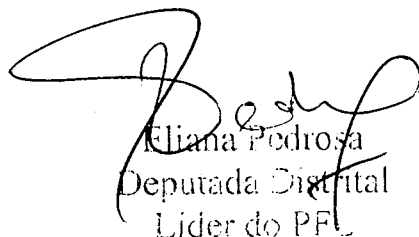 Eliana Pedrosa
Deputada Distrital
Líder do PFL